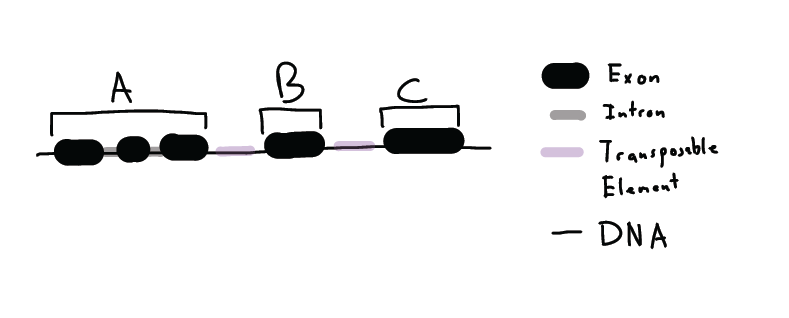 A
B
C
Exon
Intron
Transposable
Element
DNA